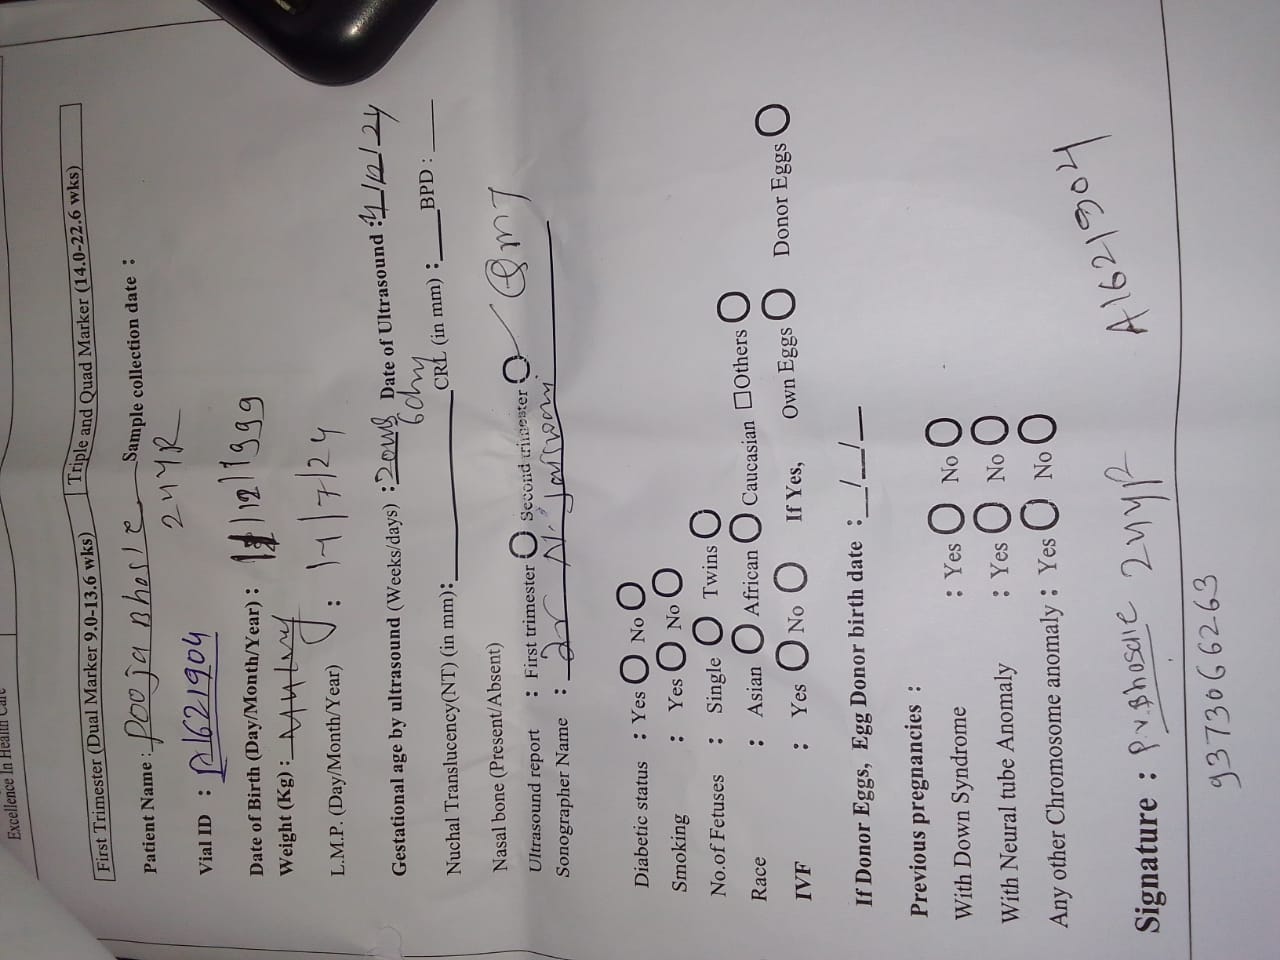 Excellence In Health Care
First Trimester (Dual Marker 9.0-13.6 wks) Triple and Quad Marker (14.0-22.6 wks)
Patient Name : Pooja Bhosle Sample collection date :
24YR
Vial ID : A1621904
Date of Birth (Day/Month/Year) : /12/1999
Weight (Kg) :
L.M.P. (Day/Month/Year) : 14/7/24
Gestational age by ultrasound (Weeks/days) : 20w Date of Ultrasound : /12/24
6day
Nuchal Translucency(NT) (in mm): CRL (in mm) : BPD :
Nasal bone (Present/Absent)
Ultrasound report : First trimester Second trimester
Sonographer Name : Dr
Diabetic status : Yes No
Smoking : Yes No
No.of Fetuses : Single Twins
Race : Asian African Caucasian Others
IVF : Yes No If Yes, Own Eggs Donor Eggs
If Donor Eggs, Egg Donor birth date : _/_/_
Previous pregnancies :
With Down Syndrome : Yes No
With Neural tube Anomaly : Yes No
Any other Chromosome anomaly : Yes No
Signature : P.V.Bhosale 24yr A1621904
9373066263